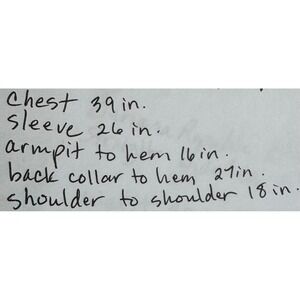 chest 39 in.
sleeve 26 in.
armpit to hem 16 in.
back collar to hem 27 in.
shoulder to shoulder 18 in.